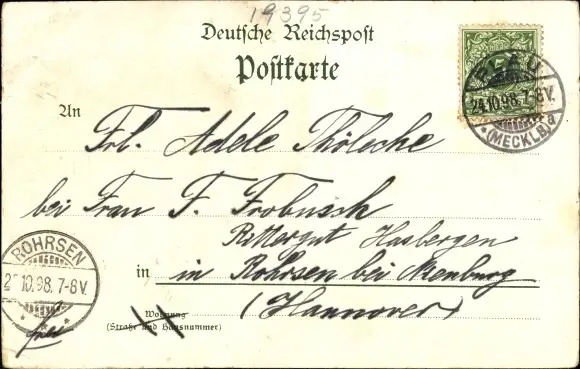 19395
Deutsche Reichspost
Postkarte
PLAU
24.10.98.7-8V.
*(MECKLB)a
An
Frl. Adele Thölecke
bei Frau F. Frobusch
Rittergut Hasbergen
in in Rohrsen bei Nienburg
(Hannover)
Wohnung
(Straße und Hausnummer)
ROHRSEN
2 10.98.7-8V.
frei